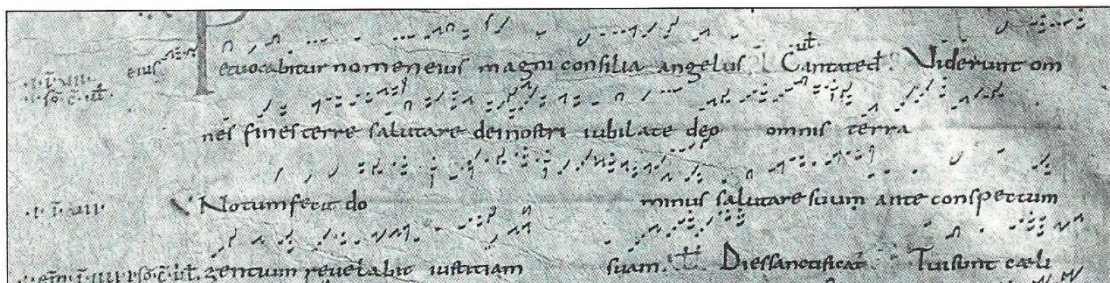 eius Et vocabitur nomen eius magni consilia angelus Cantated Viderunt om
nes fines terre salutare dei nostri iubilate deo omnis terra
V Notum fecit do minus salutare suum ante conspectum
gentium revelabit iustitiam suam. Dies sanctificat Tui sunt caeli